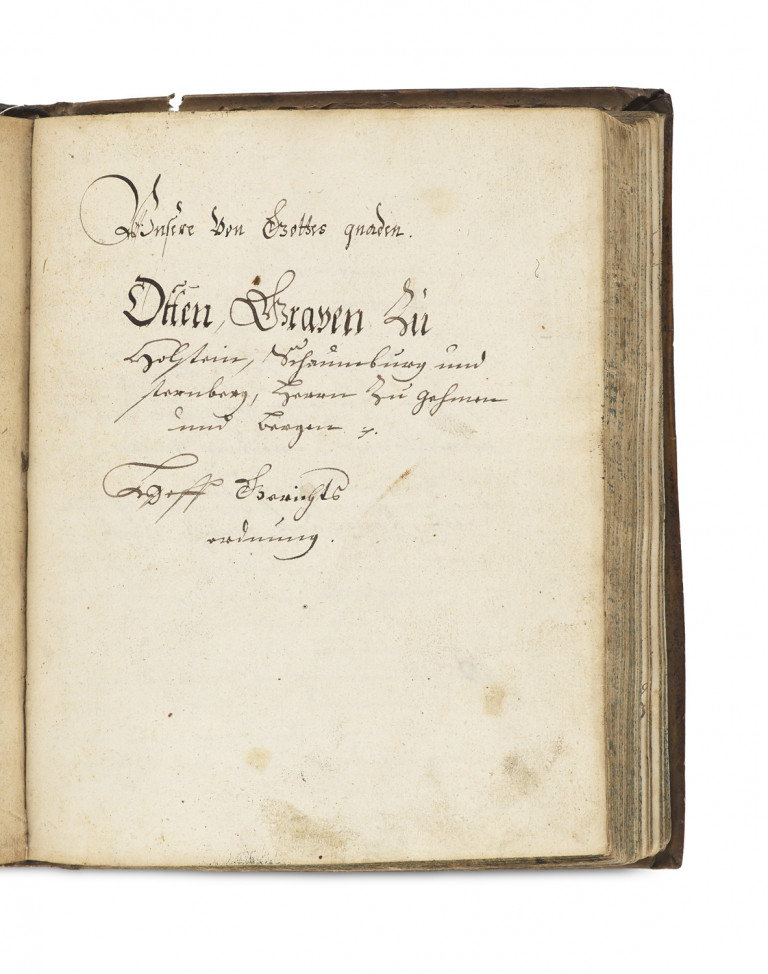 Unsere von Gottes gnaden.
Otten, Graven Zu
Holstein, Schaumburg und
sternberg, Herrn Zu gehmen
und bergen
Hoff Gerichts
ordnung.